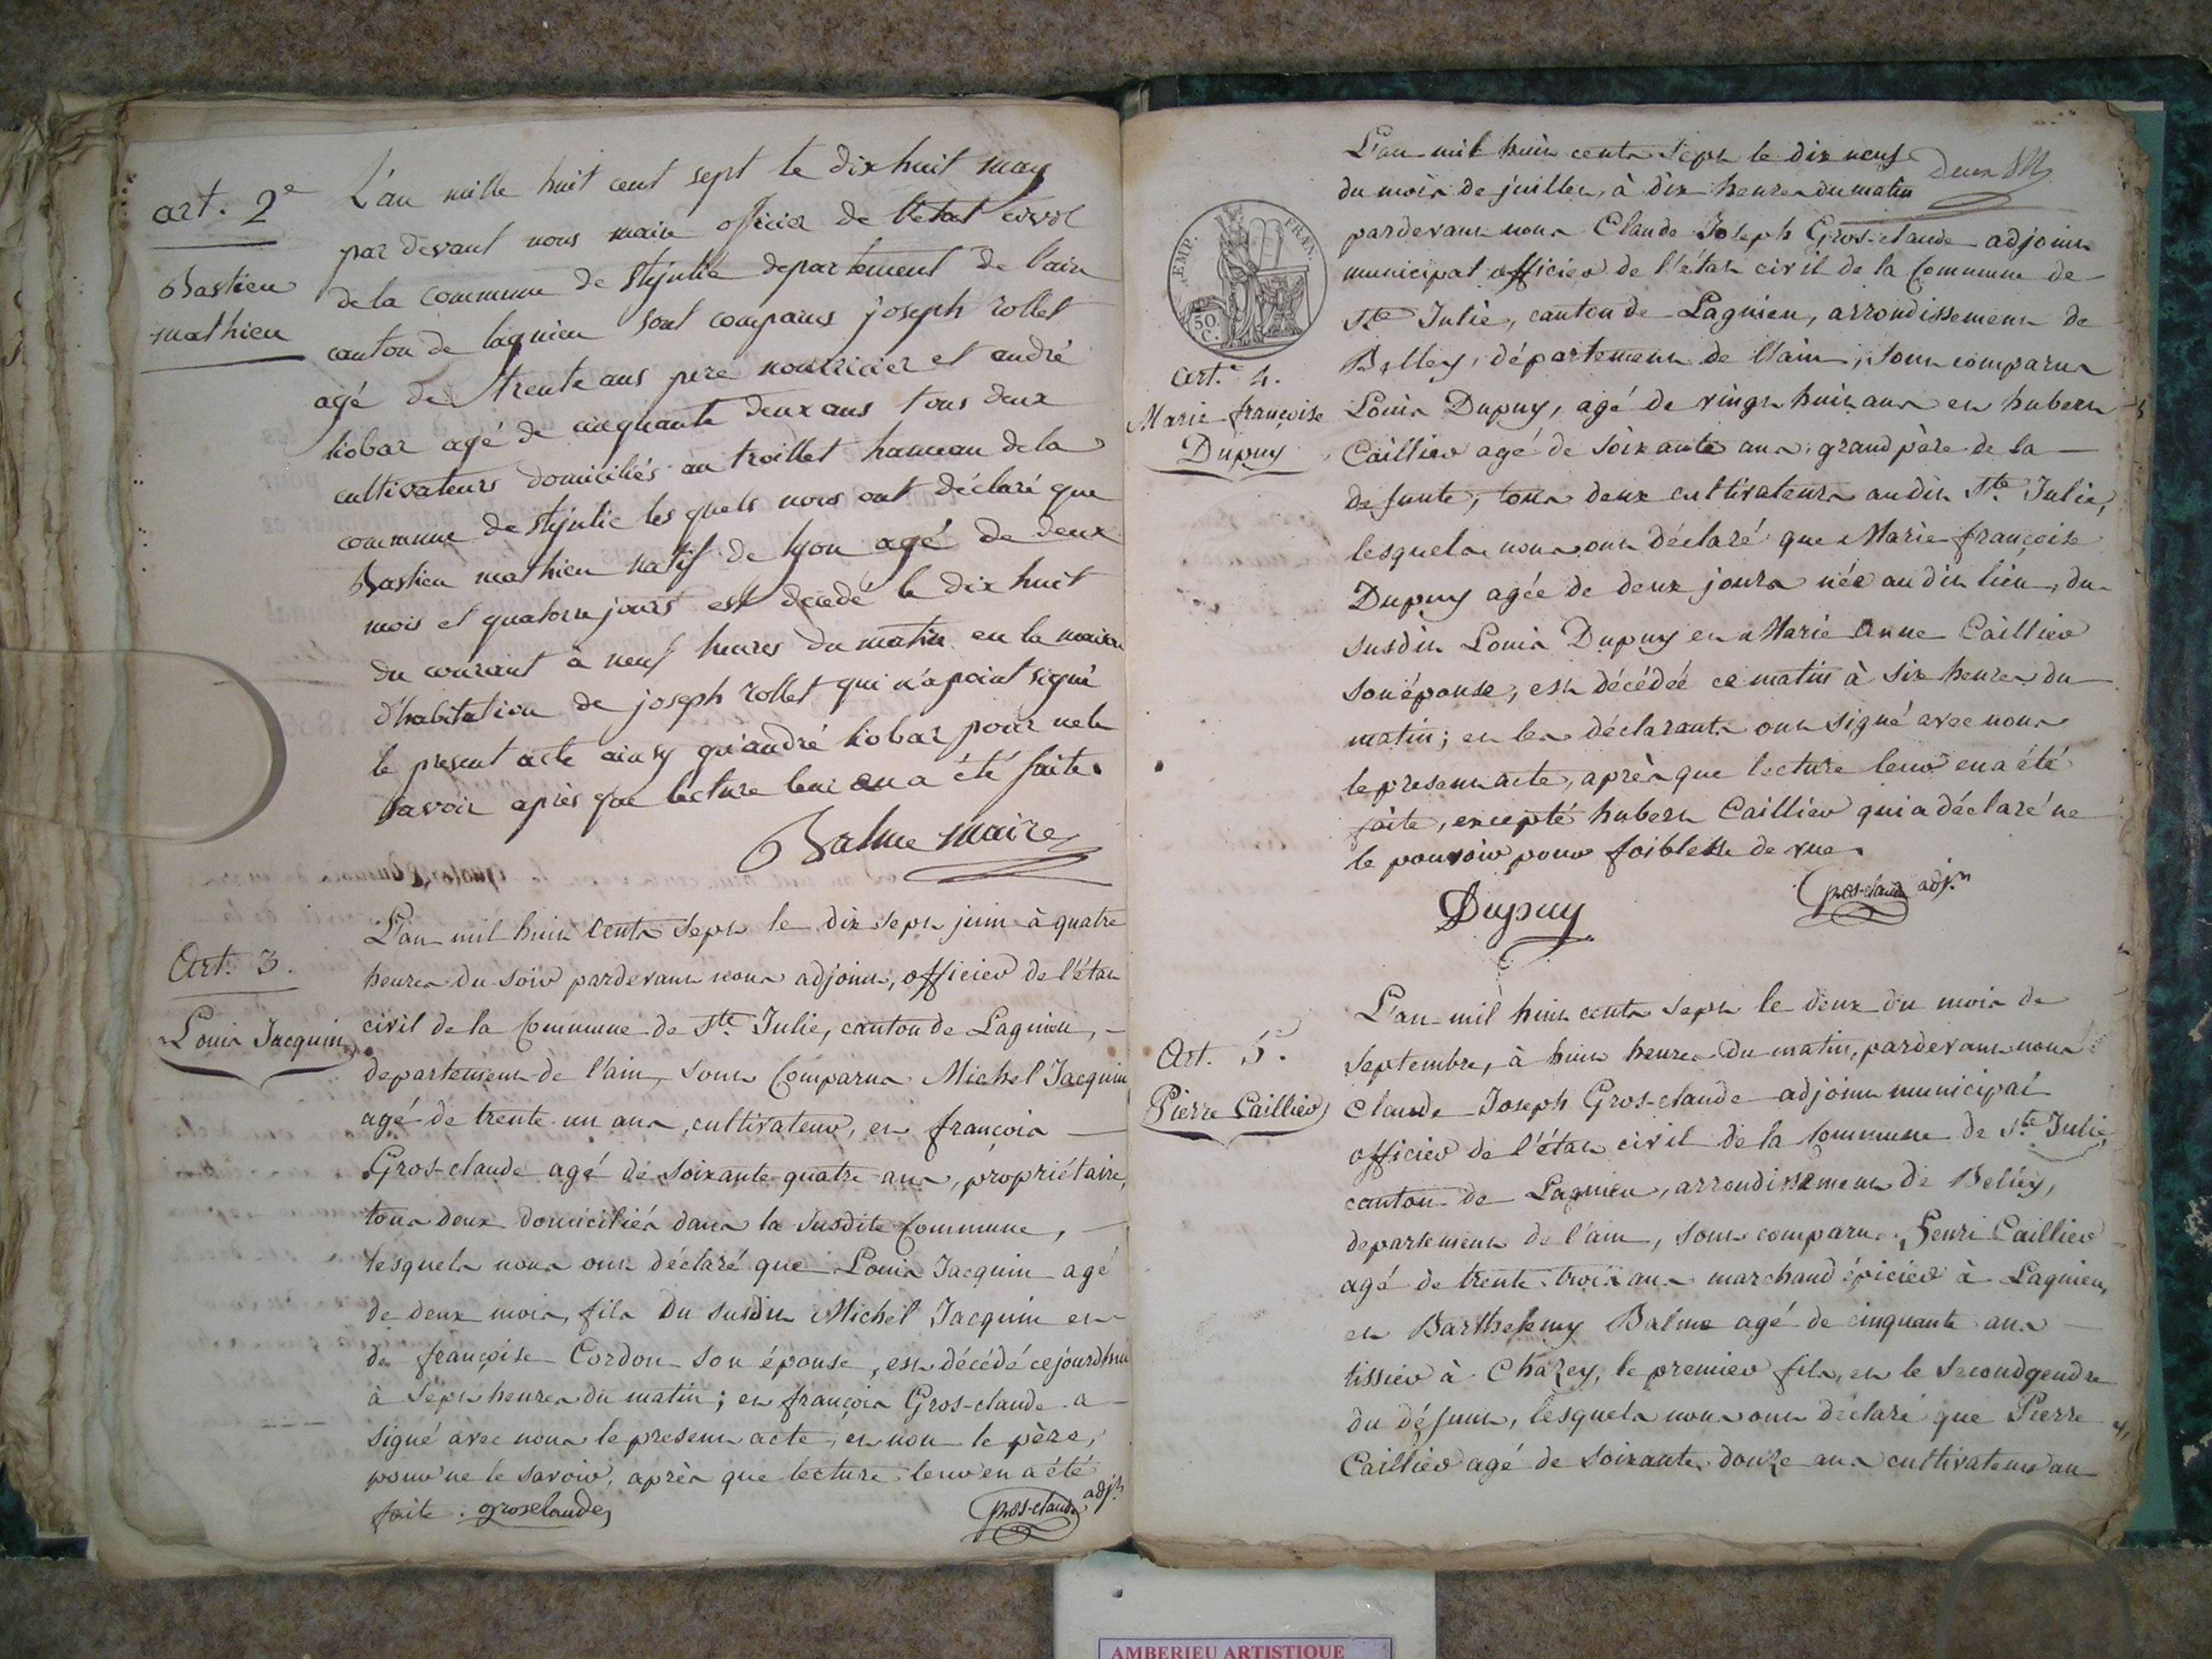 art. 2e
Bastien
mathieu
L'an mille huit cent sept le dix huit may
par devant nous maire officier de l'état civil
de la commune de Ste julie departement de l'ain
canton de lagnieu sont comparus joseph rollet
agé de trente ans pere nourricier et andré
kobar agé de cinquante deux ans tous deux
cultivateurs domiciliés au troillet hameau de la
commune de Ste julie les quels nous ont déclaré que
Bastien mathieu natif de lyon agé de deux
mois et quatorze jours est decedé le dix huit
du courant à neuf heures du matin en la maison
d'habitation de joseph rollet qui n'a point signé
le present acte ainsy qu'andré kobar pour ne le
savoir après que lecture leur en a été faite.
Balme maire
Art. 3.
Louis Jacquin
L'an mil huit cents sept le dix sept juin à quatre
heures du soir pardevant nous adjoint, officier de l'état
civil de la Commune de Ste Julie, canton de Lagnieu,
departement de l'ain, sont Comparus Michel Jacquin
agé de trente un ans, cultivateur, et françois
Gros-claude agé de soixante quatre ans, propriétaire,
tous deux domiciliés dans la susdite Commune,
lesquels nous ont déclaré que Louis Jacquin agé
de deux mois, fils du susdit Michel Jacquin et
de françoise Cordon son épouse, est décédé cejourdhui
à sept heures du matin; et françois Gros-claude a
signé avec nous le present acte, et non le père,
pour ne le savoir, après que lecture leur en a été
faite. grosclaude
Gros-claude adjt
L'an mil huit cents sept le dix neuf
du mois de juillet, à dix heures du matin
pardevant nous Claude Joseph Gros-claude adjoint
municipal officier de l'état civil de la Commune de
Ste Julie, canton de Lagnieu, arrondissement de
Belley, département de l'ain, sont comparus
Louis Dupuy, agé de vingt huit ans et hubert
Caillier agé de soixante ans, grand père de la
defunte, tous deux cultivateurs audit Ste Julie,
lesquels nous ont déclaré que Marie françoise
Dupuy agée de deux jours née audit lieu, du
susdit Louis Dupuy et Marie Anne Caillier
son épouse, est décédée ce matin à six heures du
matin; et les déclarants ont signé avec nous
le present acte, après que lecture leur en a été
faite, excepté hubert Caillier qui a déclaré ne
le pouvoir pour foiblesse de vue.
Dupuy
Gros-claude adjt
EMP. FRAN.
50. C.
Art. 4.
Marie françoise
Dupuy
Art. 5.
Pierre Caillier
L'an mil huit cents sept le deux du mois de
septembre, à huit heures du matin, pardevant nous
Claude Joseph Gros-claude adjoint municipal
officier de l'état civil de la Commune de Ste Julie,
canton de Lagnieu, arrondissement de Belley,
departement de l'ain, sont comparus henri Caillier
agé de trente trois ans marchand épicier à Lagnieu,
et Barthelemy Balme agé de cinquante ans
tissier à Chazey, le premier fils, et le second gendre
du défunt, lesquels nous ont déclaré que Pierre
Caillier agé de soixante douze ans cultivateur au
AMBERIEU ARTISTIQUE